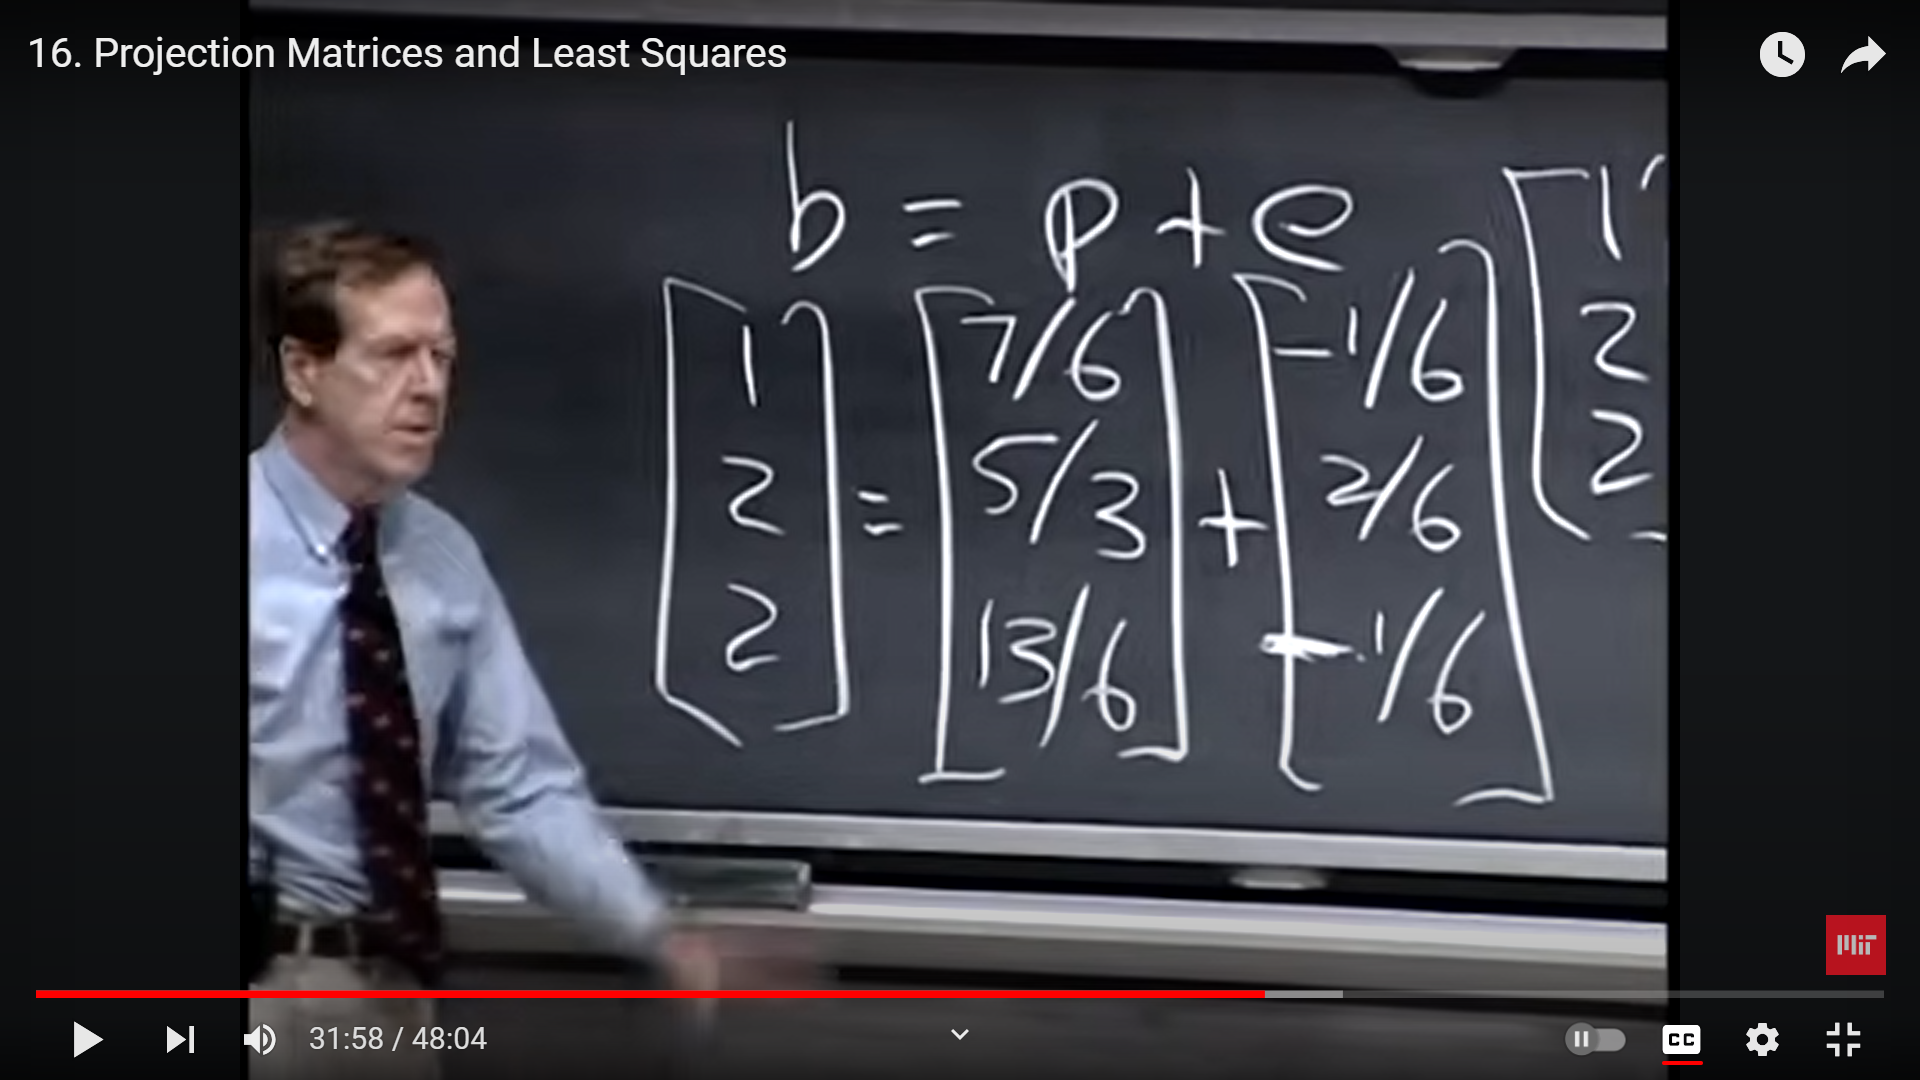 16. Projection Matrices and Least Squares
b = p + e
[1 2 2] = [7/6 5/3 13/6] + [-1/6 2/6 -1/6]
[1
2
2
MIT
31:58 / 48:04
CC